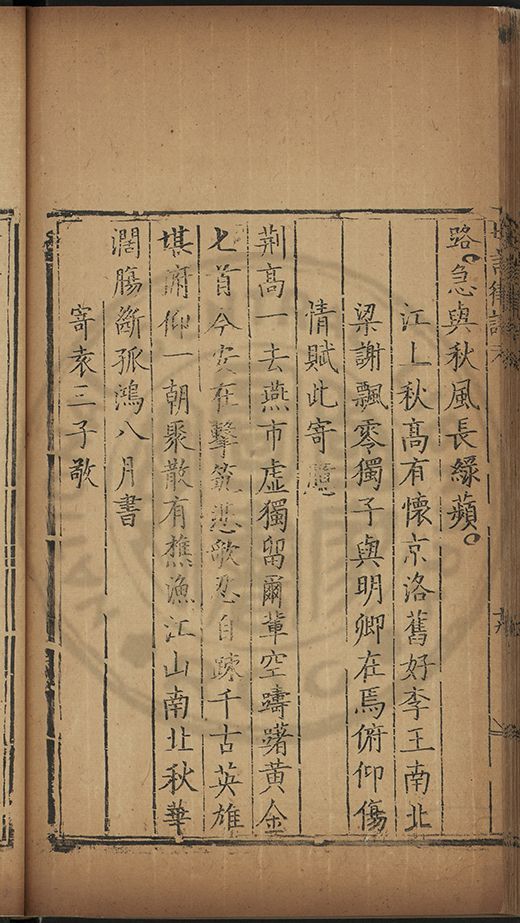 路急與秋風長綠蘋
江上秋高有懷京洛舊好李王南北
梁謝飄零獨子與明卿在焉俯仰傷
情賦此寄
荆高一去燕市虛獨留爾輩空躊躇黃金
七首今安在擊筑悲歌忍自疎千古英雄
堪俯仰一朝聚散有樵漁江山南北秋華
濶膓斷孤鴻八月書
寄袁三子敬